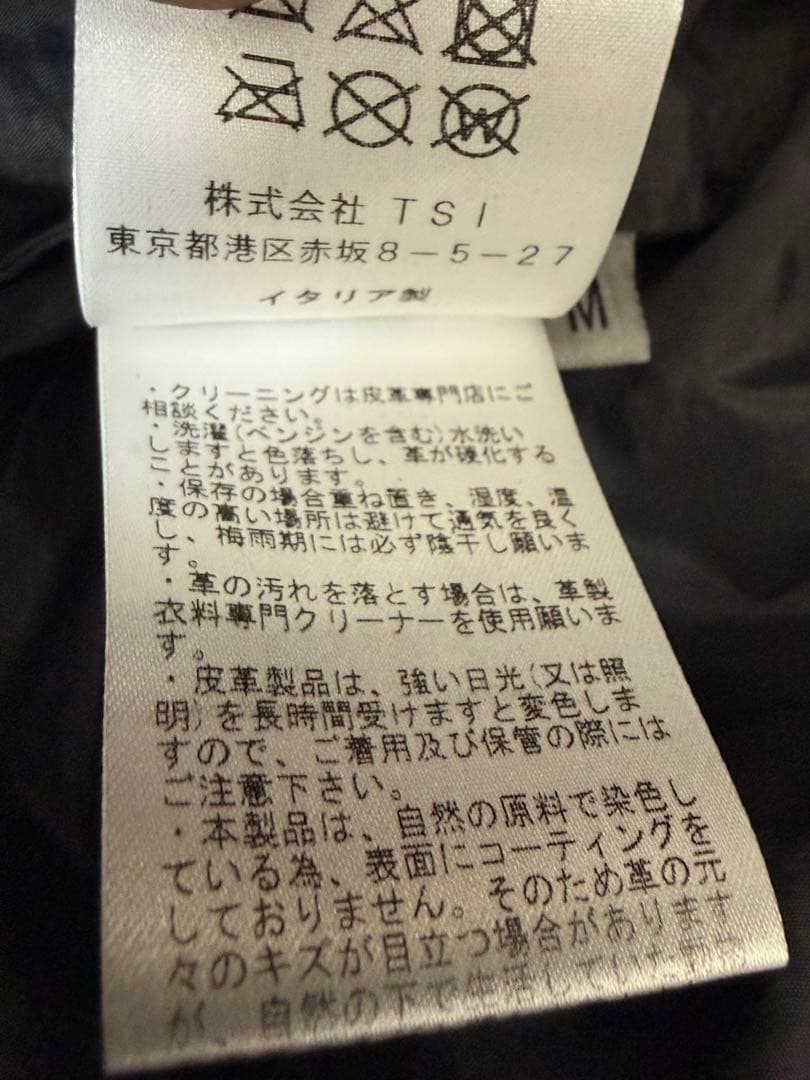 株式会社 TSI
東京都港区赤坂8－5－27
イタリア製
M
・クリーニングは皮革専門店にご
相談ください。
・洗濯(ベンジンを含む)水洗い
しますと色落ちし、革が硬化する
ことがあります。
・保存の場合重ね置き、湿度、温
度の高い場所は避けて通気を良く
し、梅雨期には必ず陰干し願いま
す。
・革の汚れを落とす場合は、革製
衣料専門クリーナーを使用願いま
す。
・皮革製品は、強い日光(又は照
明)を長時間受けますと変色しま
すので、ご着用及び保管の際には
ご注意下さい。
・本製品は、自然の原料で染色し
ている為、表面にコーティングを
しておりません。そのため革の元
々のキズが目立つ場合があります
が、自然の下で生活していた